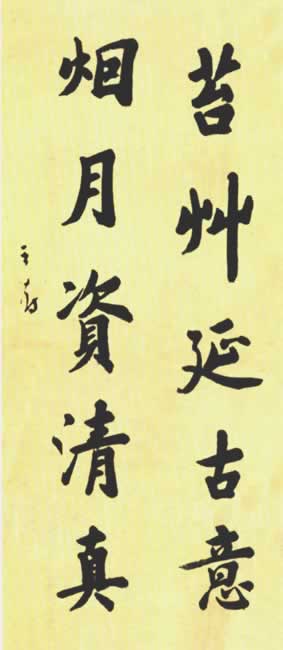 苔艸延古意
烟月資清真